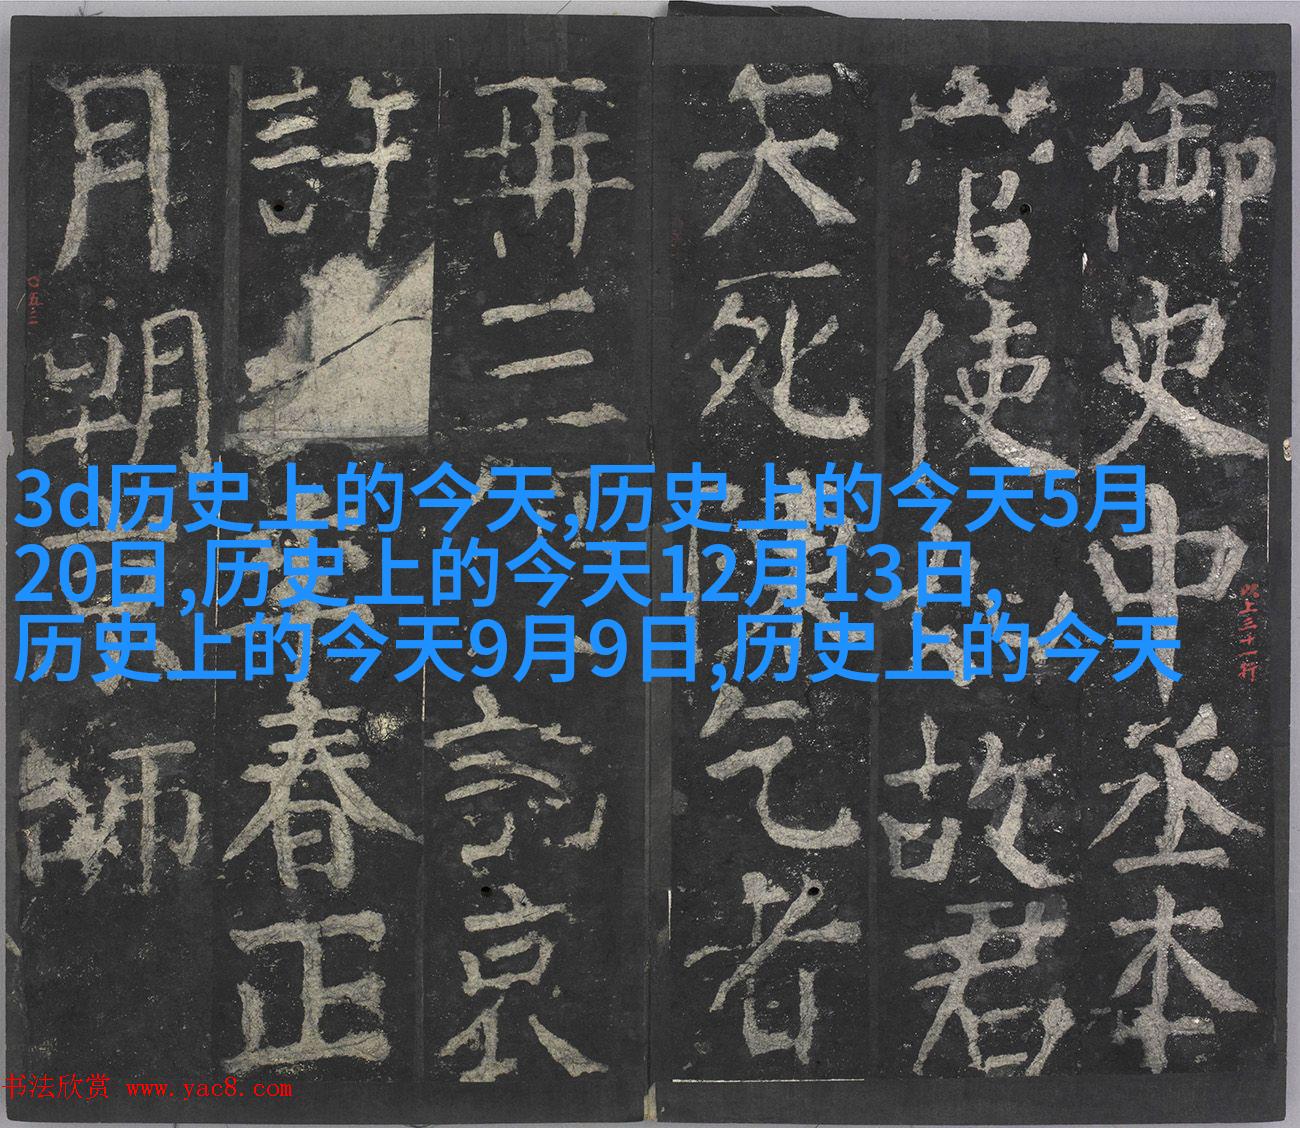 御史中丞本
當使故君
矢死陳乞者
再三京
許年春正
月朔京師
此上三十一行
3d历史上的今天,历史上的今天5月
20日,历史上的今天12月13日,
历史上的今天9月9日,历史上的今天
书法欣赏 www.yac8.com